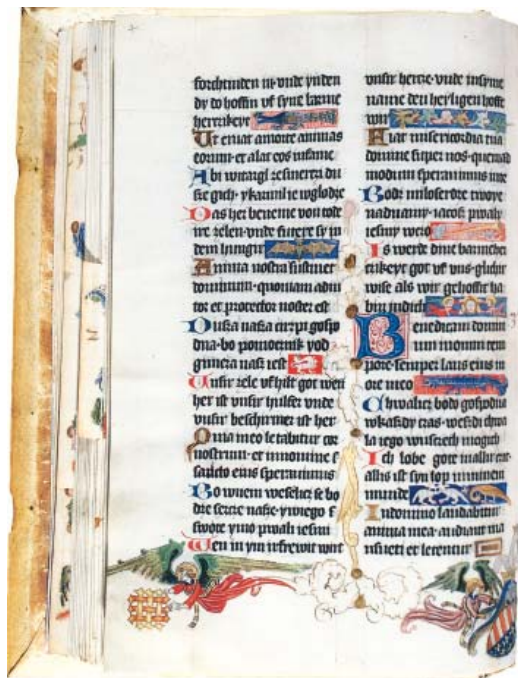 forchtinden in· vnde ynden
dy do hoffin vf syne barm
herczikeyt
Ut eruat amorte animas
eorum· et alat eos infame
Abi witargl ze smerczi du
sze gich· ykarmil ie wglodze
Das her beneme von tode
ire zelen· vnde sy yn
dem hungir
Anima nostra sustinet
dominum· quoniam adiu
tor et protector noster est
Dusza nasza czrzpi gospo
dna· bo pomocznik yod
gimcza nasz iest
Unsir zele vfhilt got wen
her ist vnsir hulfer vnde
vnsir beschirmer ist her
Quia ineo letabitur cor
nostrum· et innomine
sancto eius sperauimus
Bo wnem weselicz se bo
dze sercze nasze· ywiego
swøte ymø pwali iesmi
Wen in ym irfrewit wirt
vnsir hercze· vnde insyme
name den heyligen hoffe
wir
Fiat misericordia tua
domine super nos· quemad
modum sperauimus inte
Bødz miloserdze twoye
nadnamy· iacosz pwaly
iesmy wczø
Is werde dine barmhercz
czikeyt got vf vns· glichir
wise als wir gehoffit ha
bin indich
Benedicam domi
num inomni tem
pore· semper laus eius in
ore meo
Chwalicz bødø gospodna
wkaszdy czas· wszdi chwa
la iego wuszczech mogich
Ich lobe gote in allir czit
allis ist syn lop in minem
munde
Indomino laudabitur
anima mea· audiant ma
nsueti et letentur